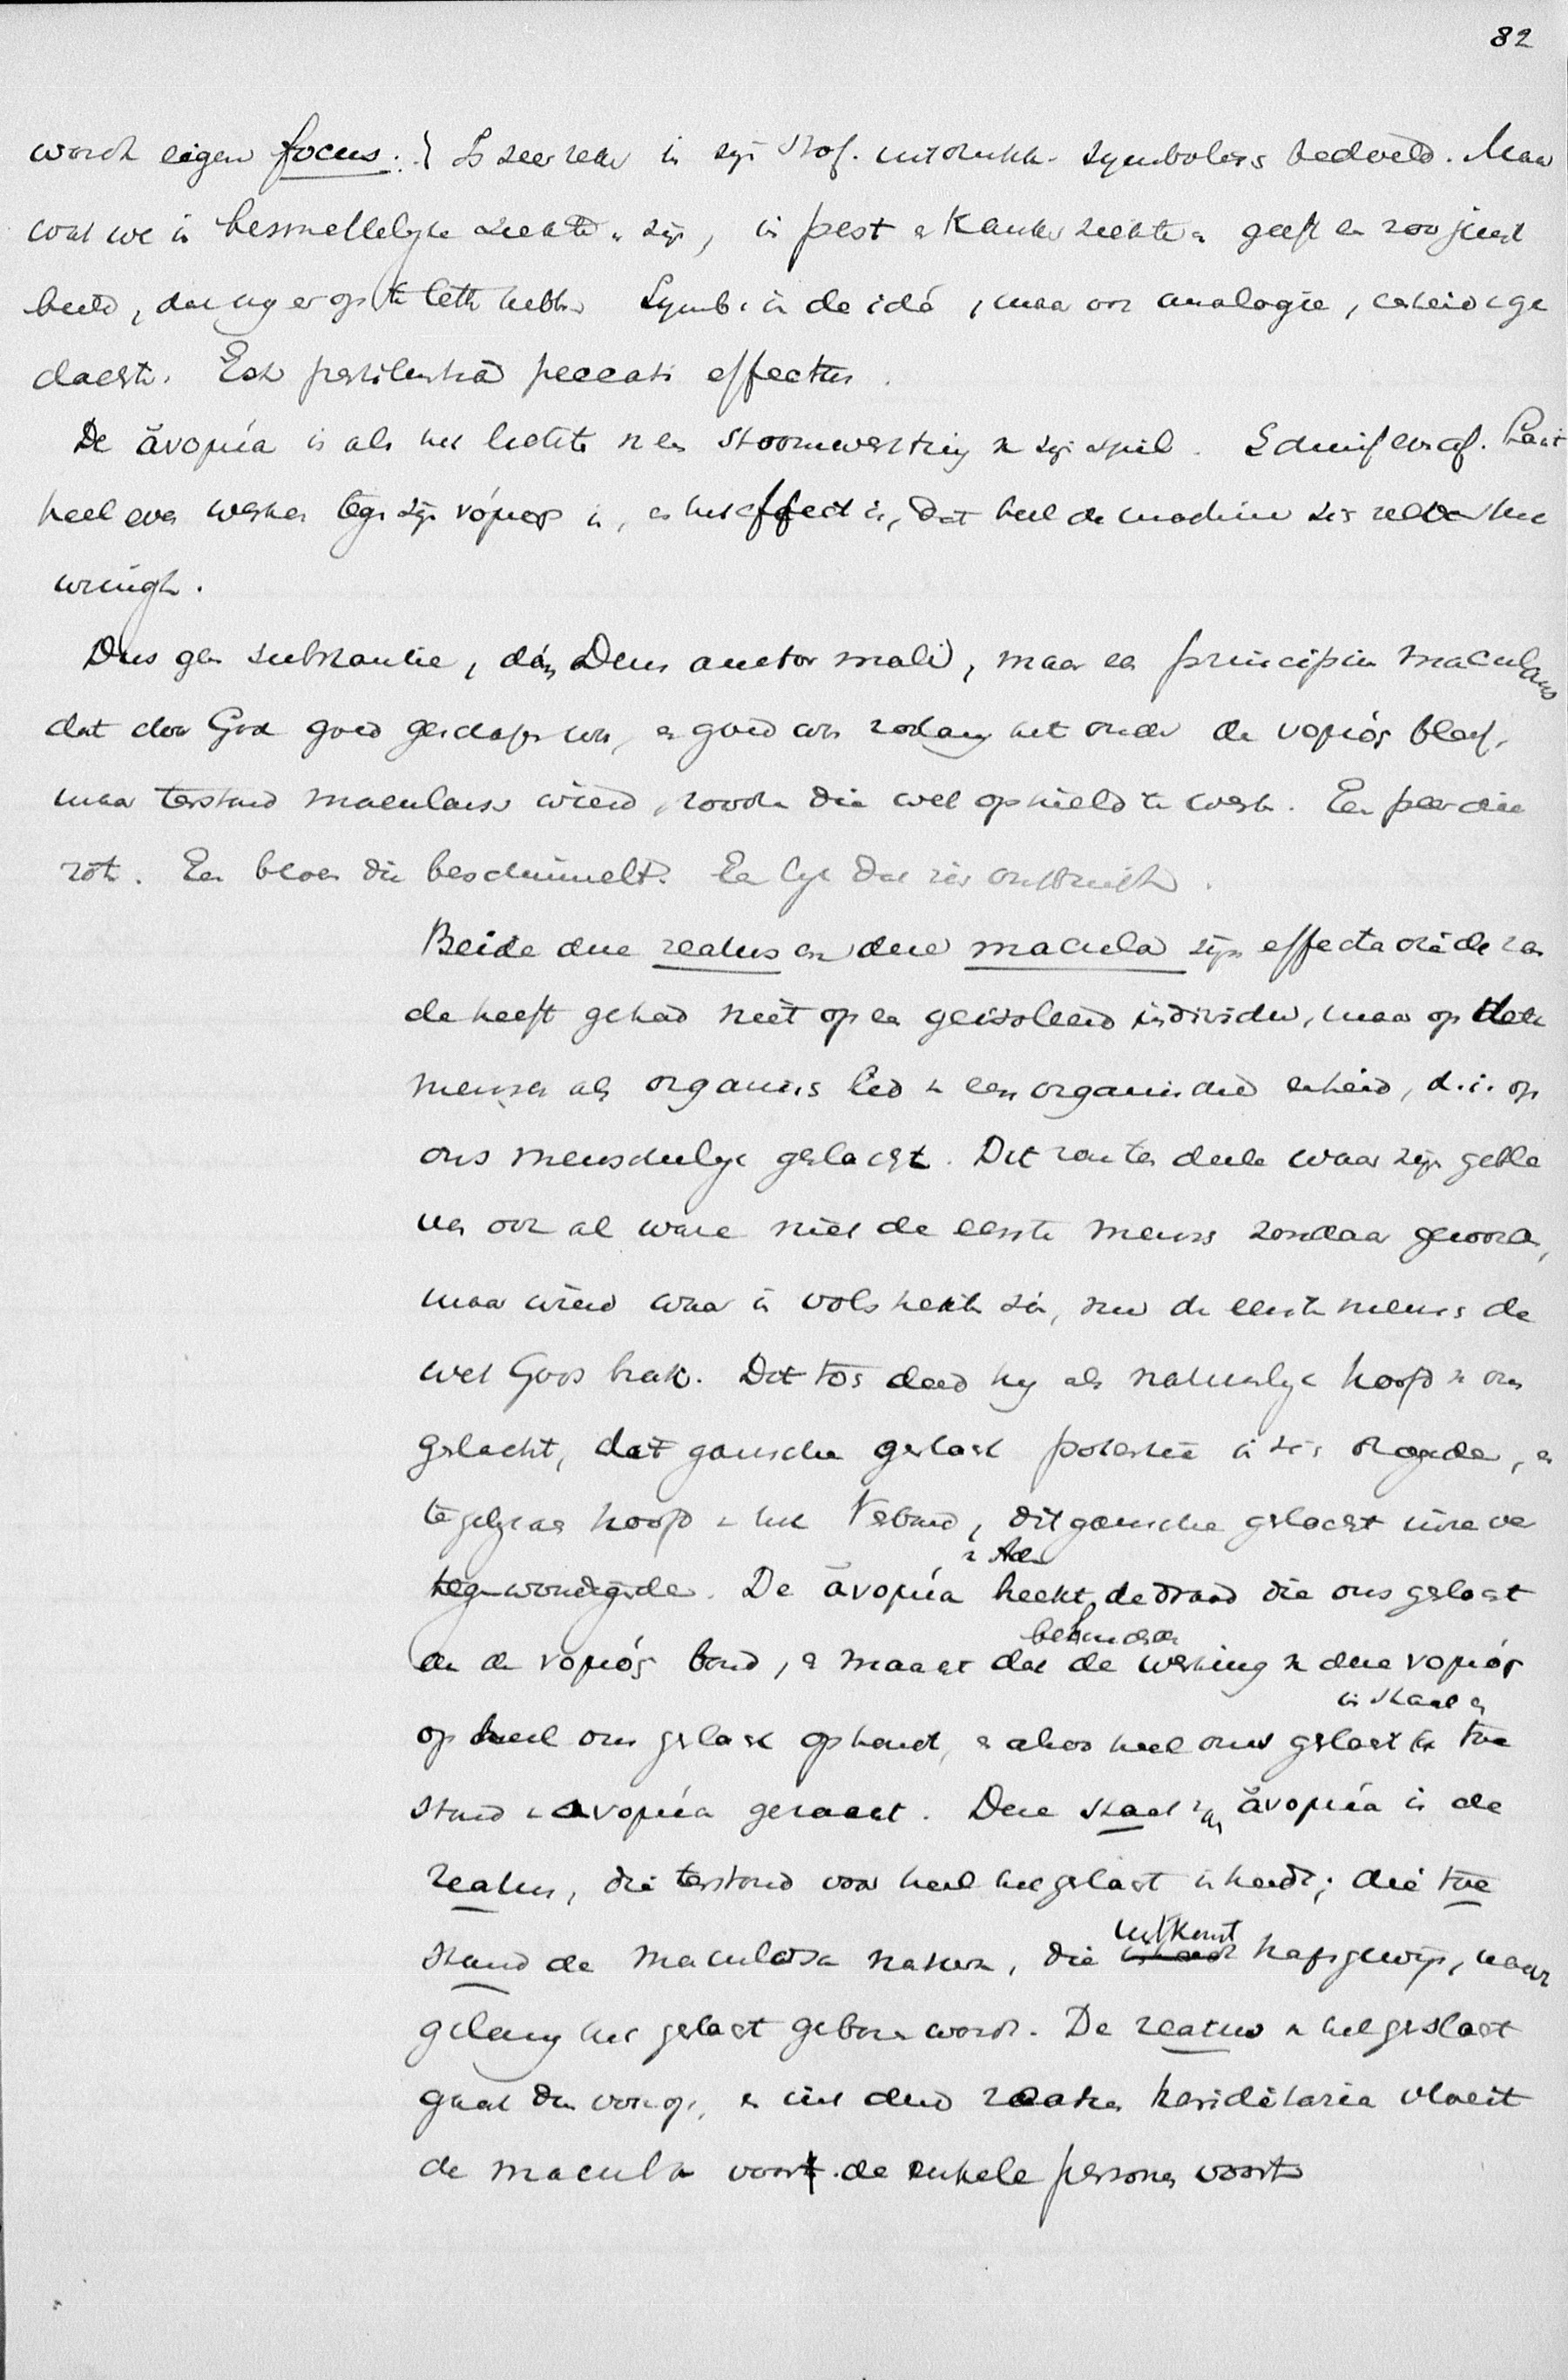 82
wordt eigen focus. } Is zeer zeker in zijn stof. uitdrukk. symbolies bedoeld. Maar
wat we in besmettelijke ziekten zijn, in pest & kanker ziekten geeft een zoo juist
beeld, dat wij er op te lett hebb. Symb. in de idé, maar ook analogie, eenheid ge
dacht. Est pestilentia peccati effectus.
De ἀνομία is als het lichte n een stoomwerktuig n zijn spil. Schuif even af. Laat
heel even werken tegen zijn νόμος in, en het effect is, dat heel de machine zich zelve
wringt.
Dus geen substantie, dán Deus auctor mali, maar een principium maculans
dat door God goed geschapen was, en goed was zoolang het onder de νομός bleef,
maar terstond maculans wierd, zoodra die wet ophield te werk. Een peer die
rot. Een bloem die beschimmelt. Een lijk dat zich ontbindt.
Beide deze reatus en deze macula zijn effecta die de zon
de heeft gehad niet op een geïsoleerd individu, maar op den
mensch als organies lid n een organiese eenheid, d.i. op
ons menschelijk geslacht. Dit zou ten deele waar zijn geble
ven ook al ware niet de eerste mensch zondaar geworden,
maar wierd waar in volstrekte zin, nu de eerste mensch de
wet Gods brak. Dit toch deed hij als natuurlijk hoofd n ons
geslacht, dat gansche geslacht potentie in zich dragende, en
tegelijk als hoofd n het Verbond, dit gansche geslacht
tegenwoordigende. De ἀνομία n Adam breekt de draad die ons geslacht
aan de νομός bond, & maakt dat de behoudende werking n deze νομός
op heel ons geslacht ophoudt, & alzoo heel ons geslacht in staat en toe
stand n ἀνομία geraakt. Deze staat van ἀνομία is de
reatus, die terstond voor heel het geslacht intreedt; die toe
stand de maculosa natura, die uitkomt trapsgewijs, naar
gelang het geslacht geboren wordt. De reatus n het geslacht
gaat dus voorop, en uit deze reatus hereditaria vloeit
de macula voor de enkele personen voort